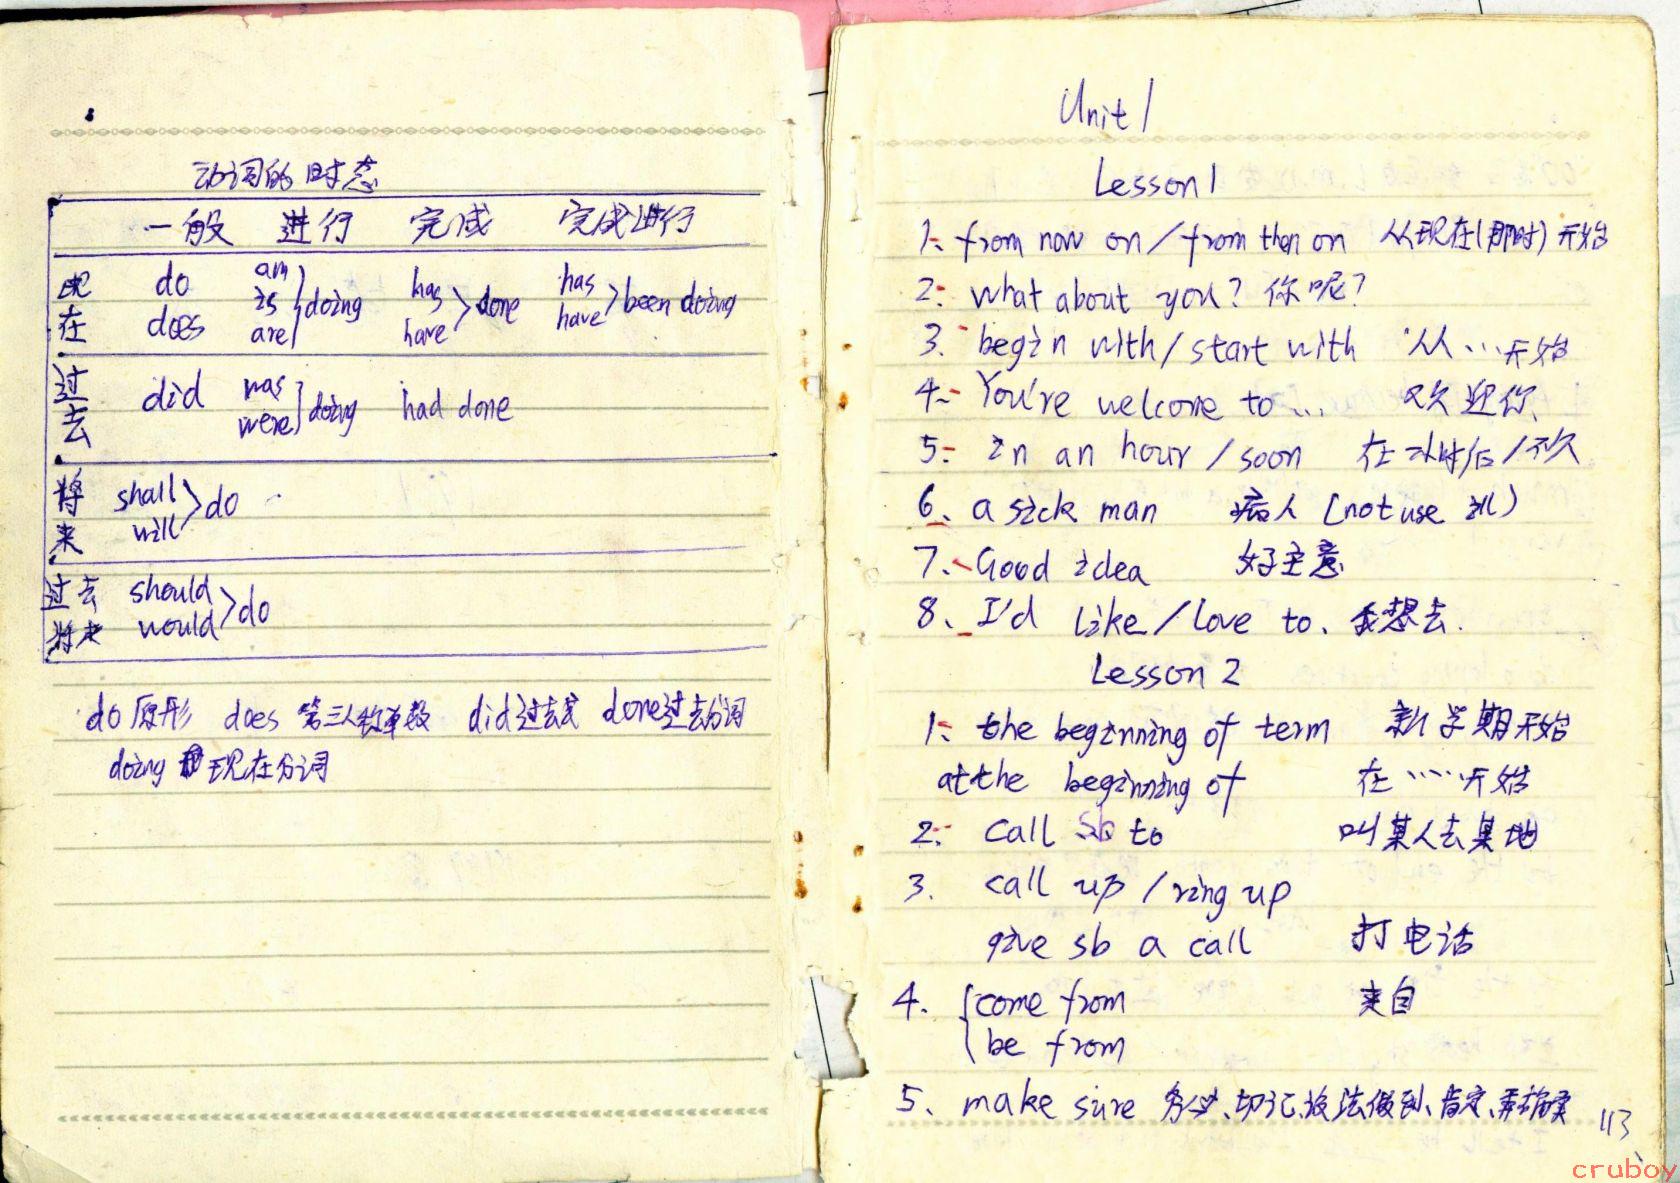 动词的时态
一般 进行 完成 完成进行
现在 do does am is are } doing has have > done has have > been doing
过去 did was were } doing had done
将来 shall will > do
过去将来 should would > do
do 原形 does 第三人称单数 did 过去式 done 过去分词
doing 现在分词
Unit 1
Lesson 1
1、from now on / from then on 从现在(那时)开始
2、what about you? 你呢?
3、begin with / start with 从…开始
4、You're welcome to… 欢迎你、
5、in an hour / soon 在小时后/不久
6、a sick man 病人 (not use ill)
7、Good idea 好主意
8、I'd like / love to、我想去.
Lesson 2
1、the beginning of term 新学期开始
at the beginning of 在……开始
2、call sb to 叫某人去某地
3、call up / ring up
give sb a call 打电话
4、{ come from 来自
be from
5、make sure 务必、切记、设法做到、肯定、弄确实
113
cruboy